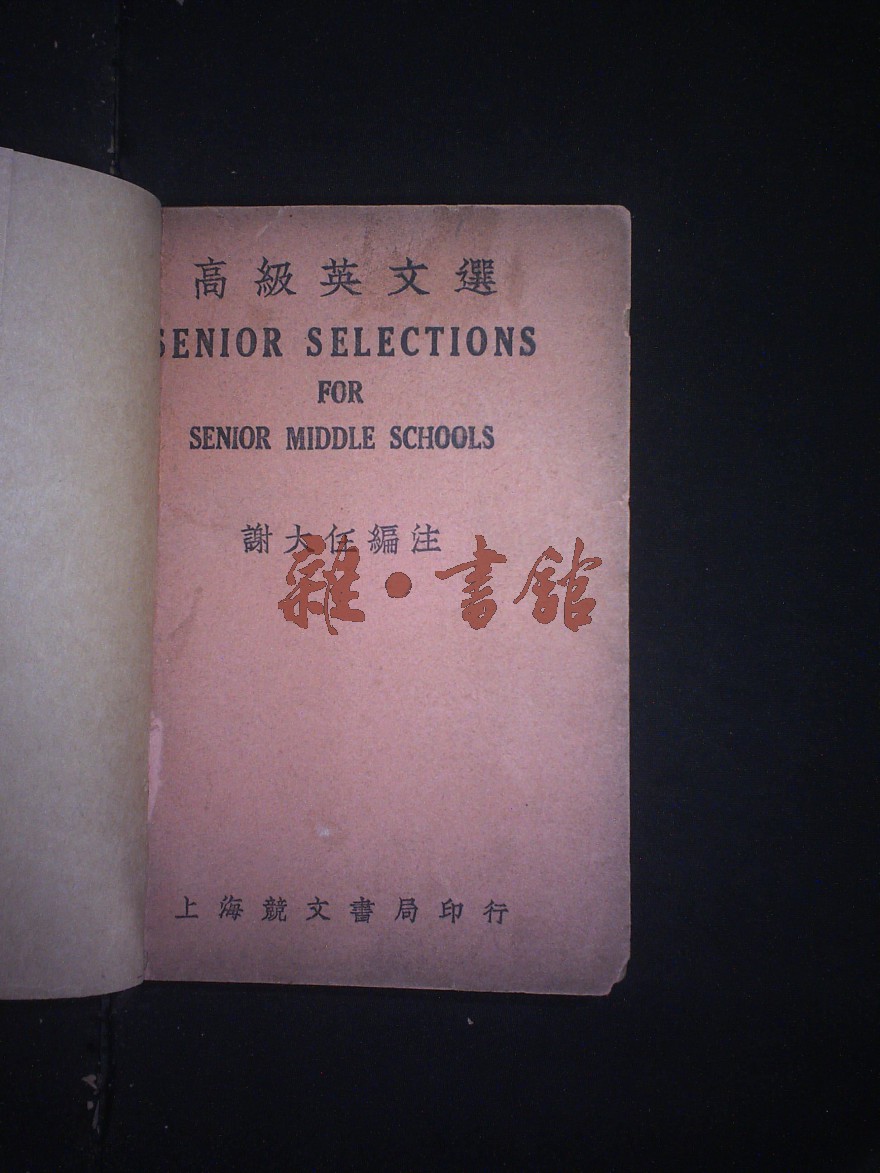 高級英文選
SENIOR SELECTIONS
FOR
SENIOR MIDDLE SCHOOLS
謝大任編注
雜·書館
上海競文書局印行